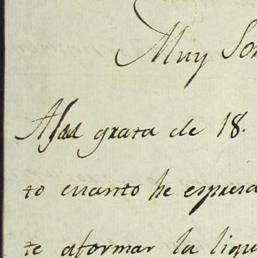 Muy So
A su grata de 18.
to cuanto he espresa
te aformar la liqu